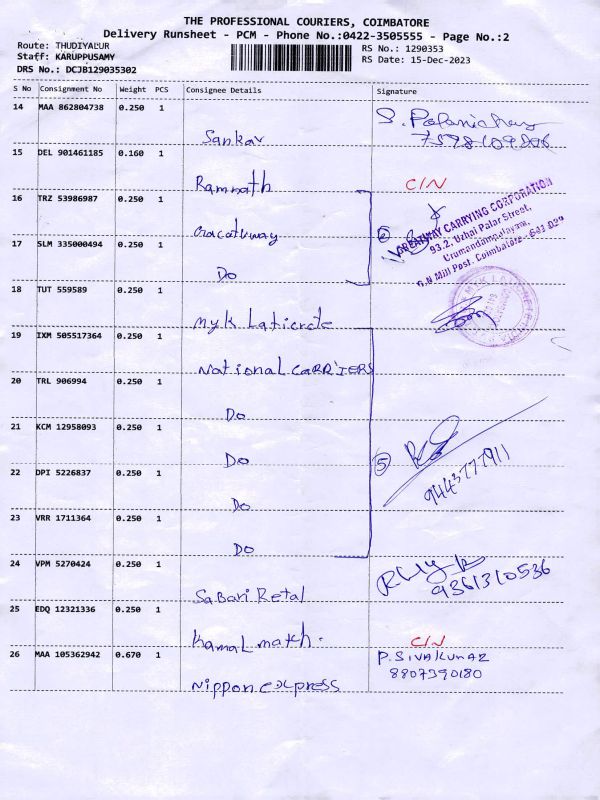 THE PROFESSIONAL COURIERS, COIMBATORE
Delivery Runsheet - PCM - Phone No.:0422-3505555 - Page No.:2
Route: THUDIYALUR
RS No.: 1290353
Staff: KARUPPUSAMY
RS Date: 15-Dec-2023
DRS No.: DCJB129035302
S No Consignment No Weight PCS Consignee Details Signature
14 MAA 862804738 0.250 1
Sankar
15 DEL 901461185 0.160 1
Ramnath C/N
16 TRZ 53986987 0.250 1
GREATWAY CARRYING CORPORATION
93.2, Uzhai Palar Street,
Urumandampalayam,
G.N Mill Post, Coimbatore - 641 029
17 SLM 335000494 0.250 1
Do
18 TUT 559589 0.250 1
Myk Laticrete
19 IXM 505517364 0.250 1
National CARRIERS
20 TRL 906994 0.250 1
Do
21 KCM 12958093 0.250 1
Do
5
22 DPI 5226837 0.250 1
Do
23 VRR 1711364 0.250 1
Do
24 VPM 5270424 0.250 1
9361310536
Sabari Retal
25 EDQ 12321336 0.250 1
Kamal math. C/N
26 MAA 105362942 0.670 1
P. SIVAKUMAR
8807390180
Nippon express